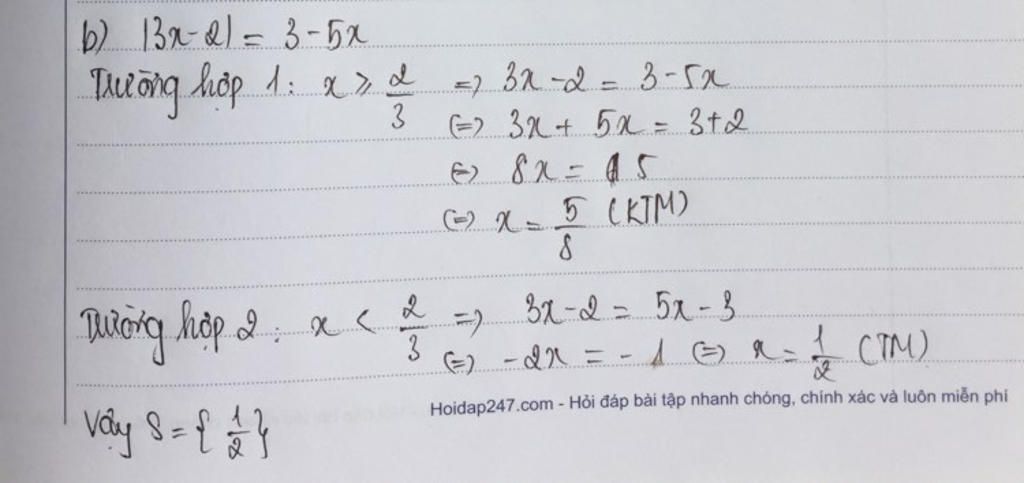 b) |3x-2| = 3-5x
Trường hợp 1: x ≥ 2/3 => 3x-2 = 3-5x
(=) 3x + 5x = 3+2
(=) 8x = 5
(=) x = 5/8 (KTM)
Trường hợp 2: x < 2/3 => 3x-2 = 5x-3
(=) -2x = -1 (=) x = 1/2 (TM)
Hoidap247.com - Hỏi đáp bài tập nhanh chóng, chính xác và luôn miễn phí
Vậy S = { 1/2 }